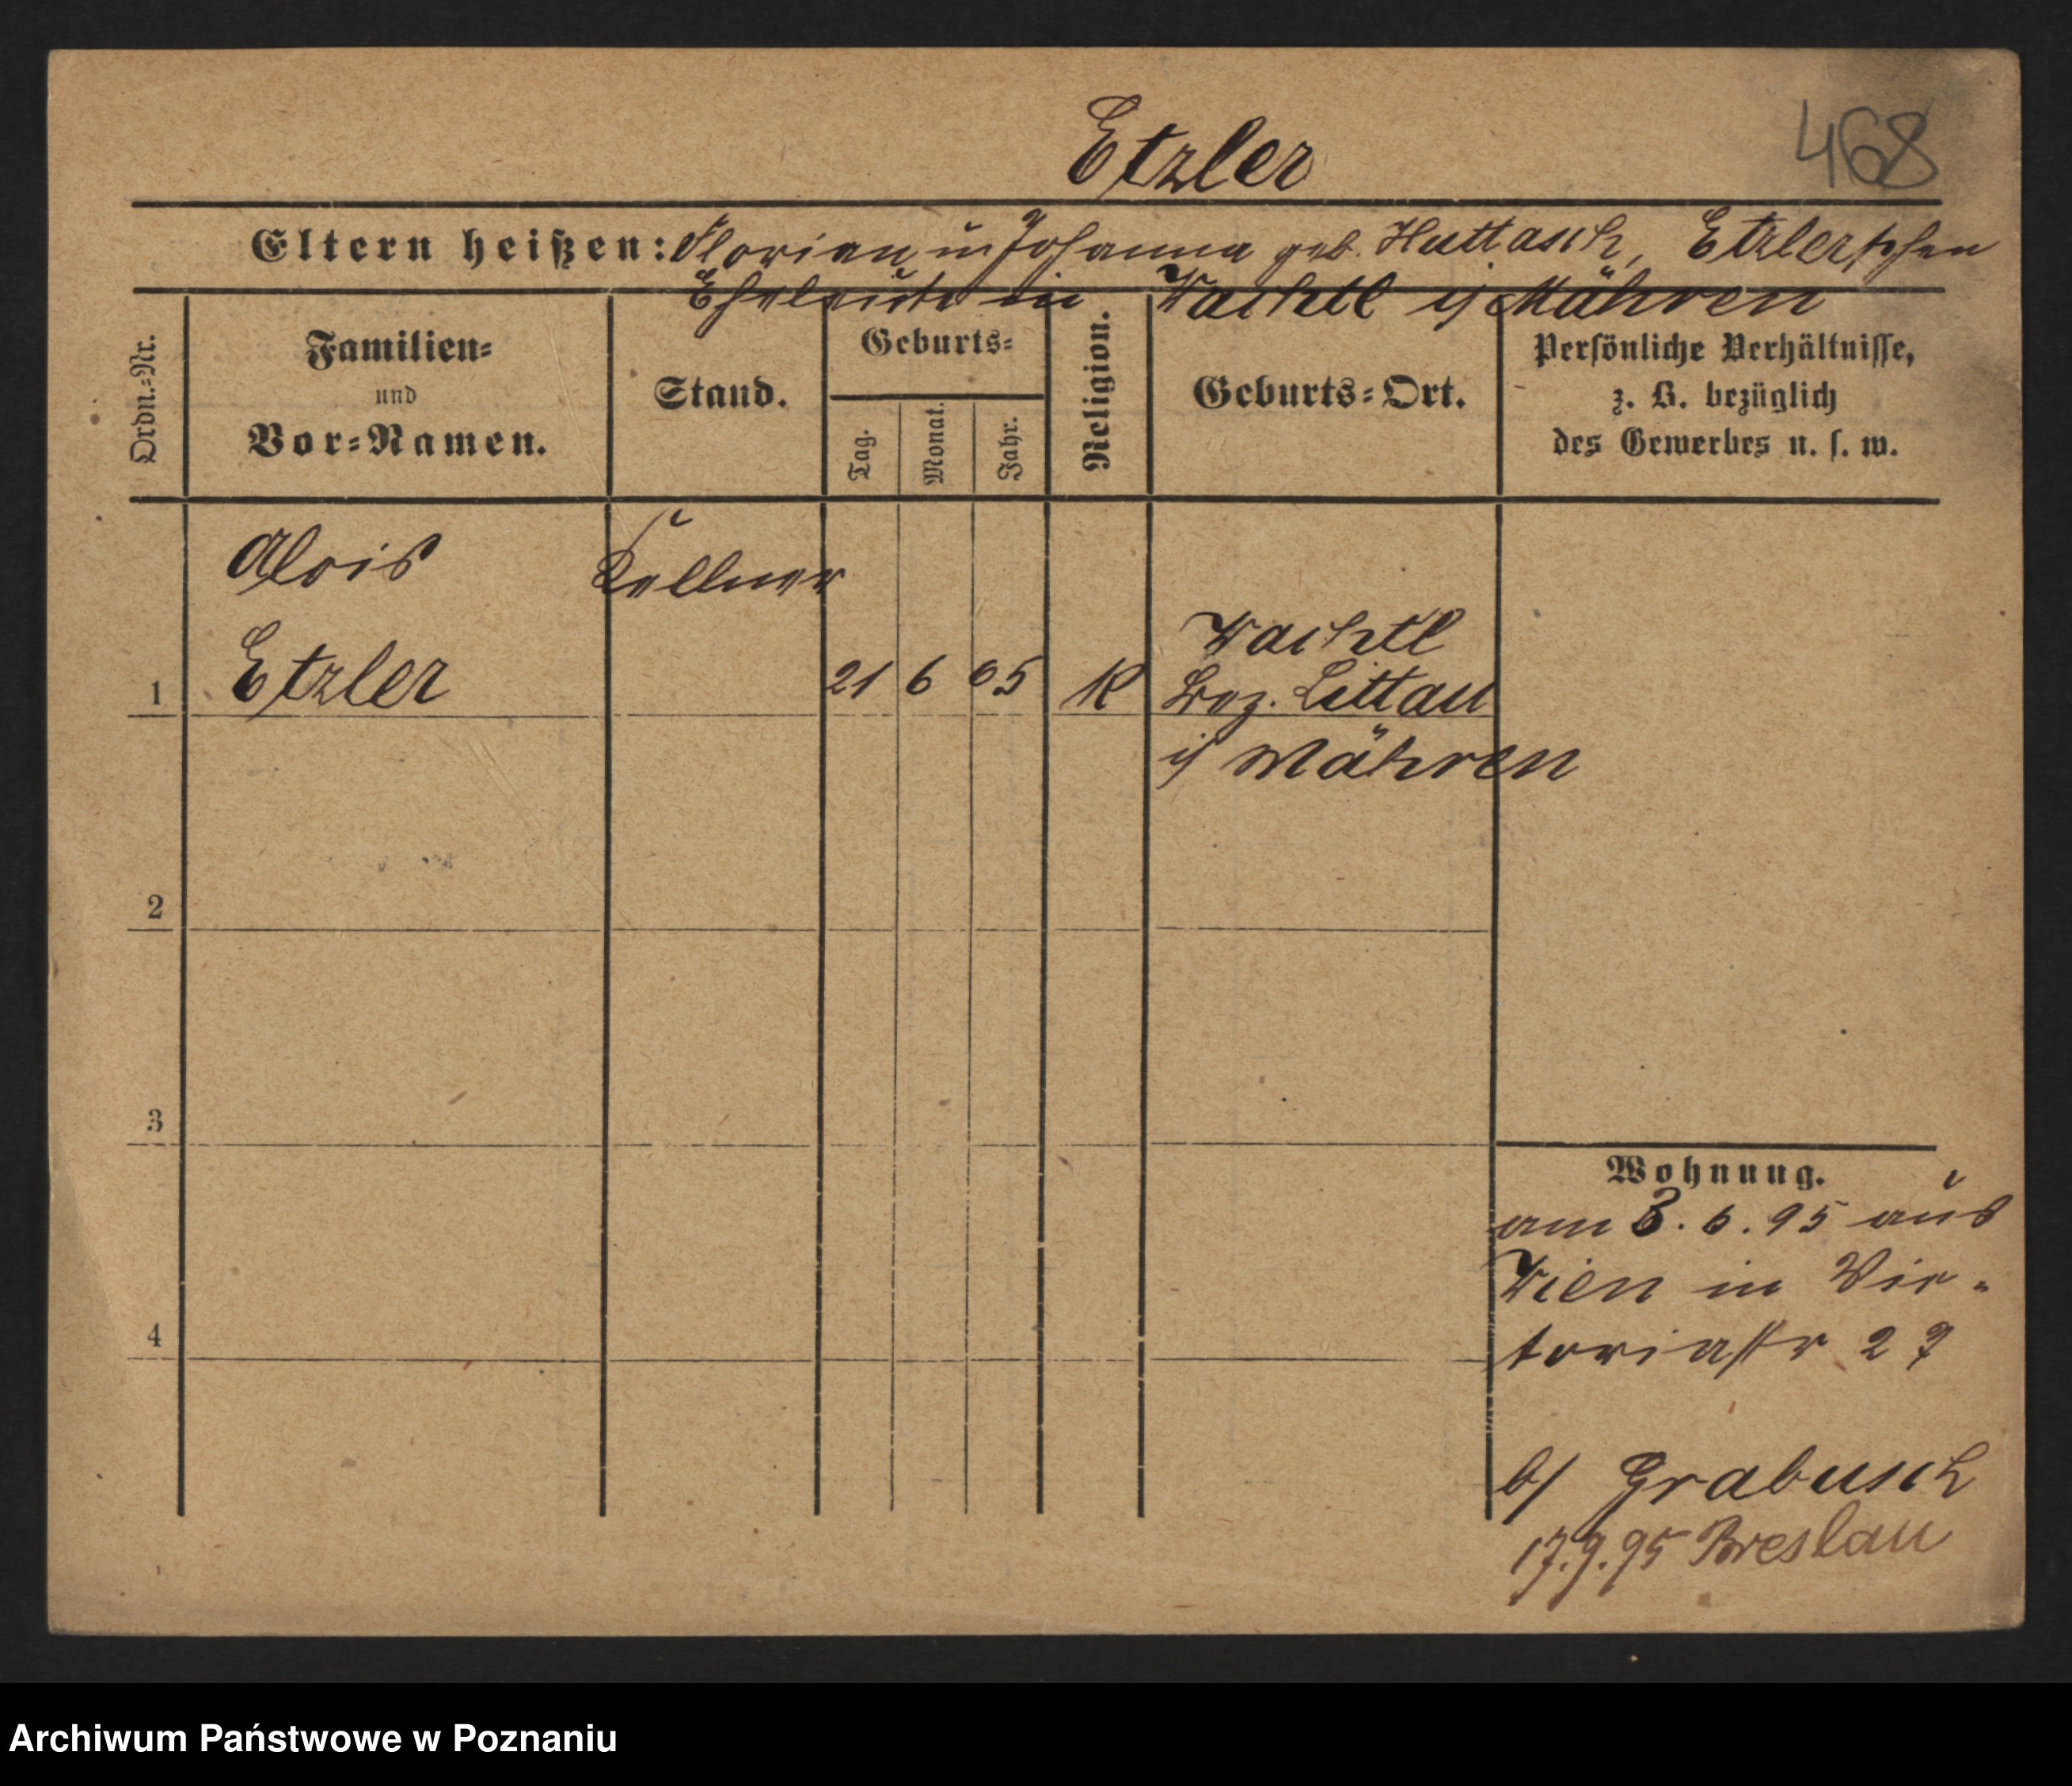 Etzler
468
Eltern heißen: Florian u Johanna geb. Huttasch, Etzlerschen
Eheleute in Wachtl i/ Mähren
Ordn.-Nr.
Familien-
und
Vor-Namen.
Stand.
Geburts-
Tag.
Monat.
Jahr.
Religion.
Geburts-Ort.
Persönliche Verhältnisse,
z. B. bezüglich
des Gewerbes u. s. w.
Alois Kellner
Wachtl
1 Etzler 21 6 65 K Bez. Littau
i/ Mähren
2
3
Wohnung.
am 3. 6. 95 aus
Wien in Vic-
4
toriastr 27
b/ Grabusch
17.9.95 Breslau
Archiwum Państwowe w Poznaniu